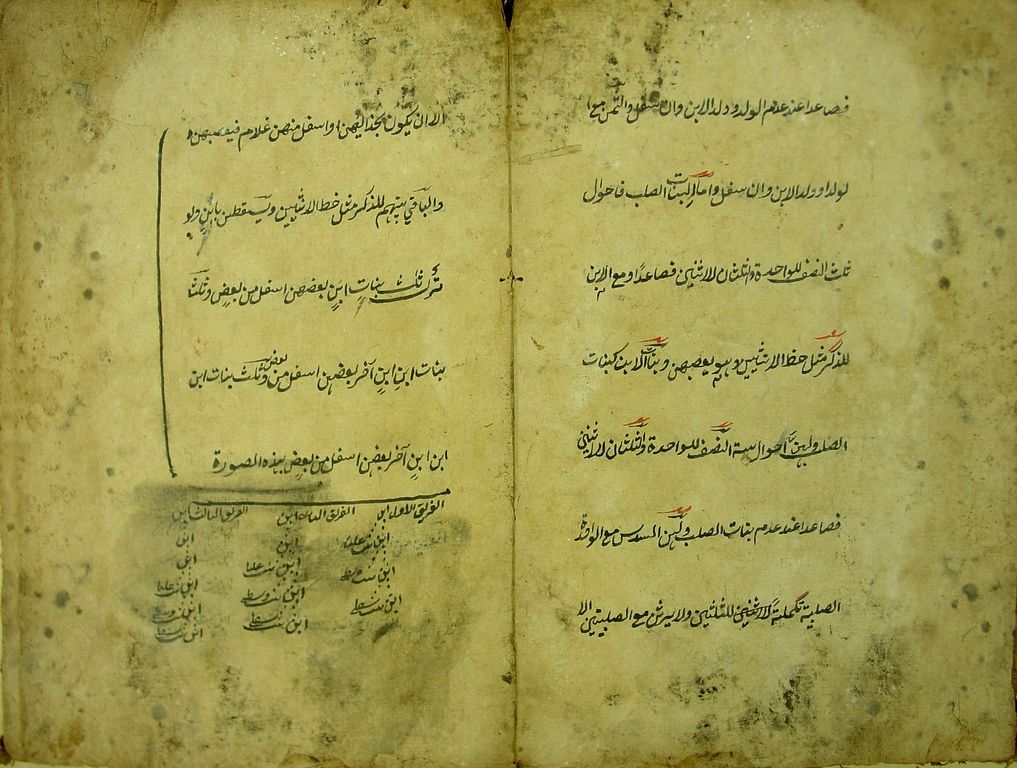 فصاعدا عند عدم الولد و ولد الابن وان سفل والثمن مع ا
لولد او ولد الابن وان سفل واما لبنات الصلب فاحوال
ثلث النصف للواحدة والثلثان للاثنين فصاعدا ومع الابن
للذكر مثل حظ الانثيين وهو يعصبهن وبنات الابن كبنات
الصلب ولهن احوال ستة النصف للواحدة والثلثان للاثنين
فصاعدا عند عدم بنات الصلب ولهن السدس مع الواحدة
الصلبية تكملة للثلثين ولا يرثن مع الصلبيتين الا
الا ان يكون بحذائهن او اسفل منهن غلام فيعصبهن
والباقي بينهم للذكر مثل حظ الانثيين ويسقطن بابن ولو
ترك ثلث بنات ابن بعضهن اسفل من بعض وثلث
بنات ابن ابن آخر بعضهن اسفل من بعض وثلث بنات ابن
ابن ابن آخر بعضهن اسفل من بعض بهذه الصورة
الفريق الاول ابن الفريق الثاني ابن الفريق الثالث ابن
ابن بنت عليا ابن ابن
ابن بنت وسطى ابن بنت عليا ابن
ابن بنت سفلى ابن بنت وسطى ابن بنت عليا
ابن بنت سفلى ابن بنت وسطى
ابن بنت سفلى